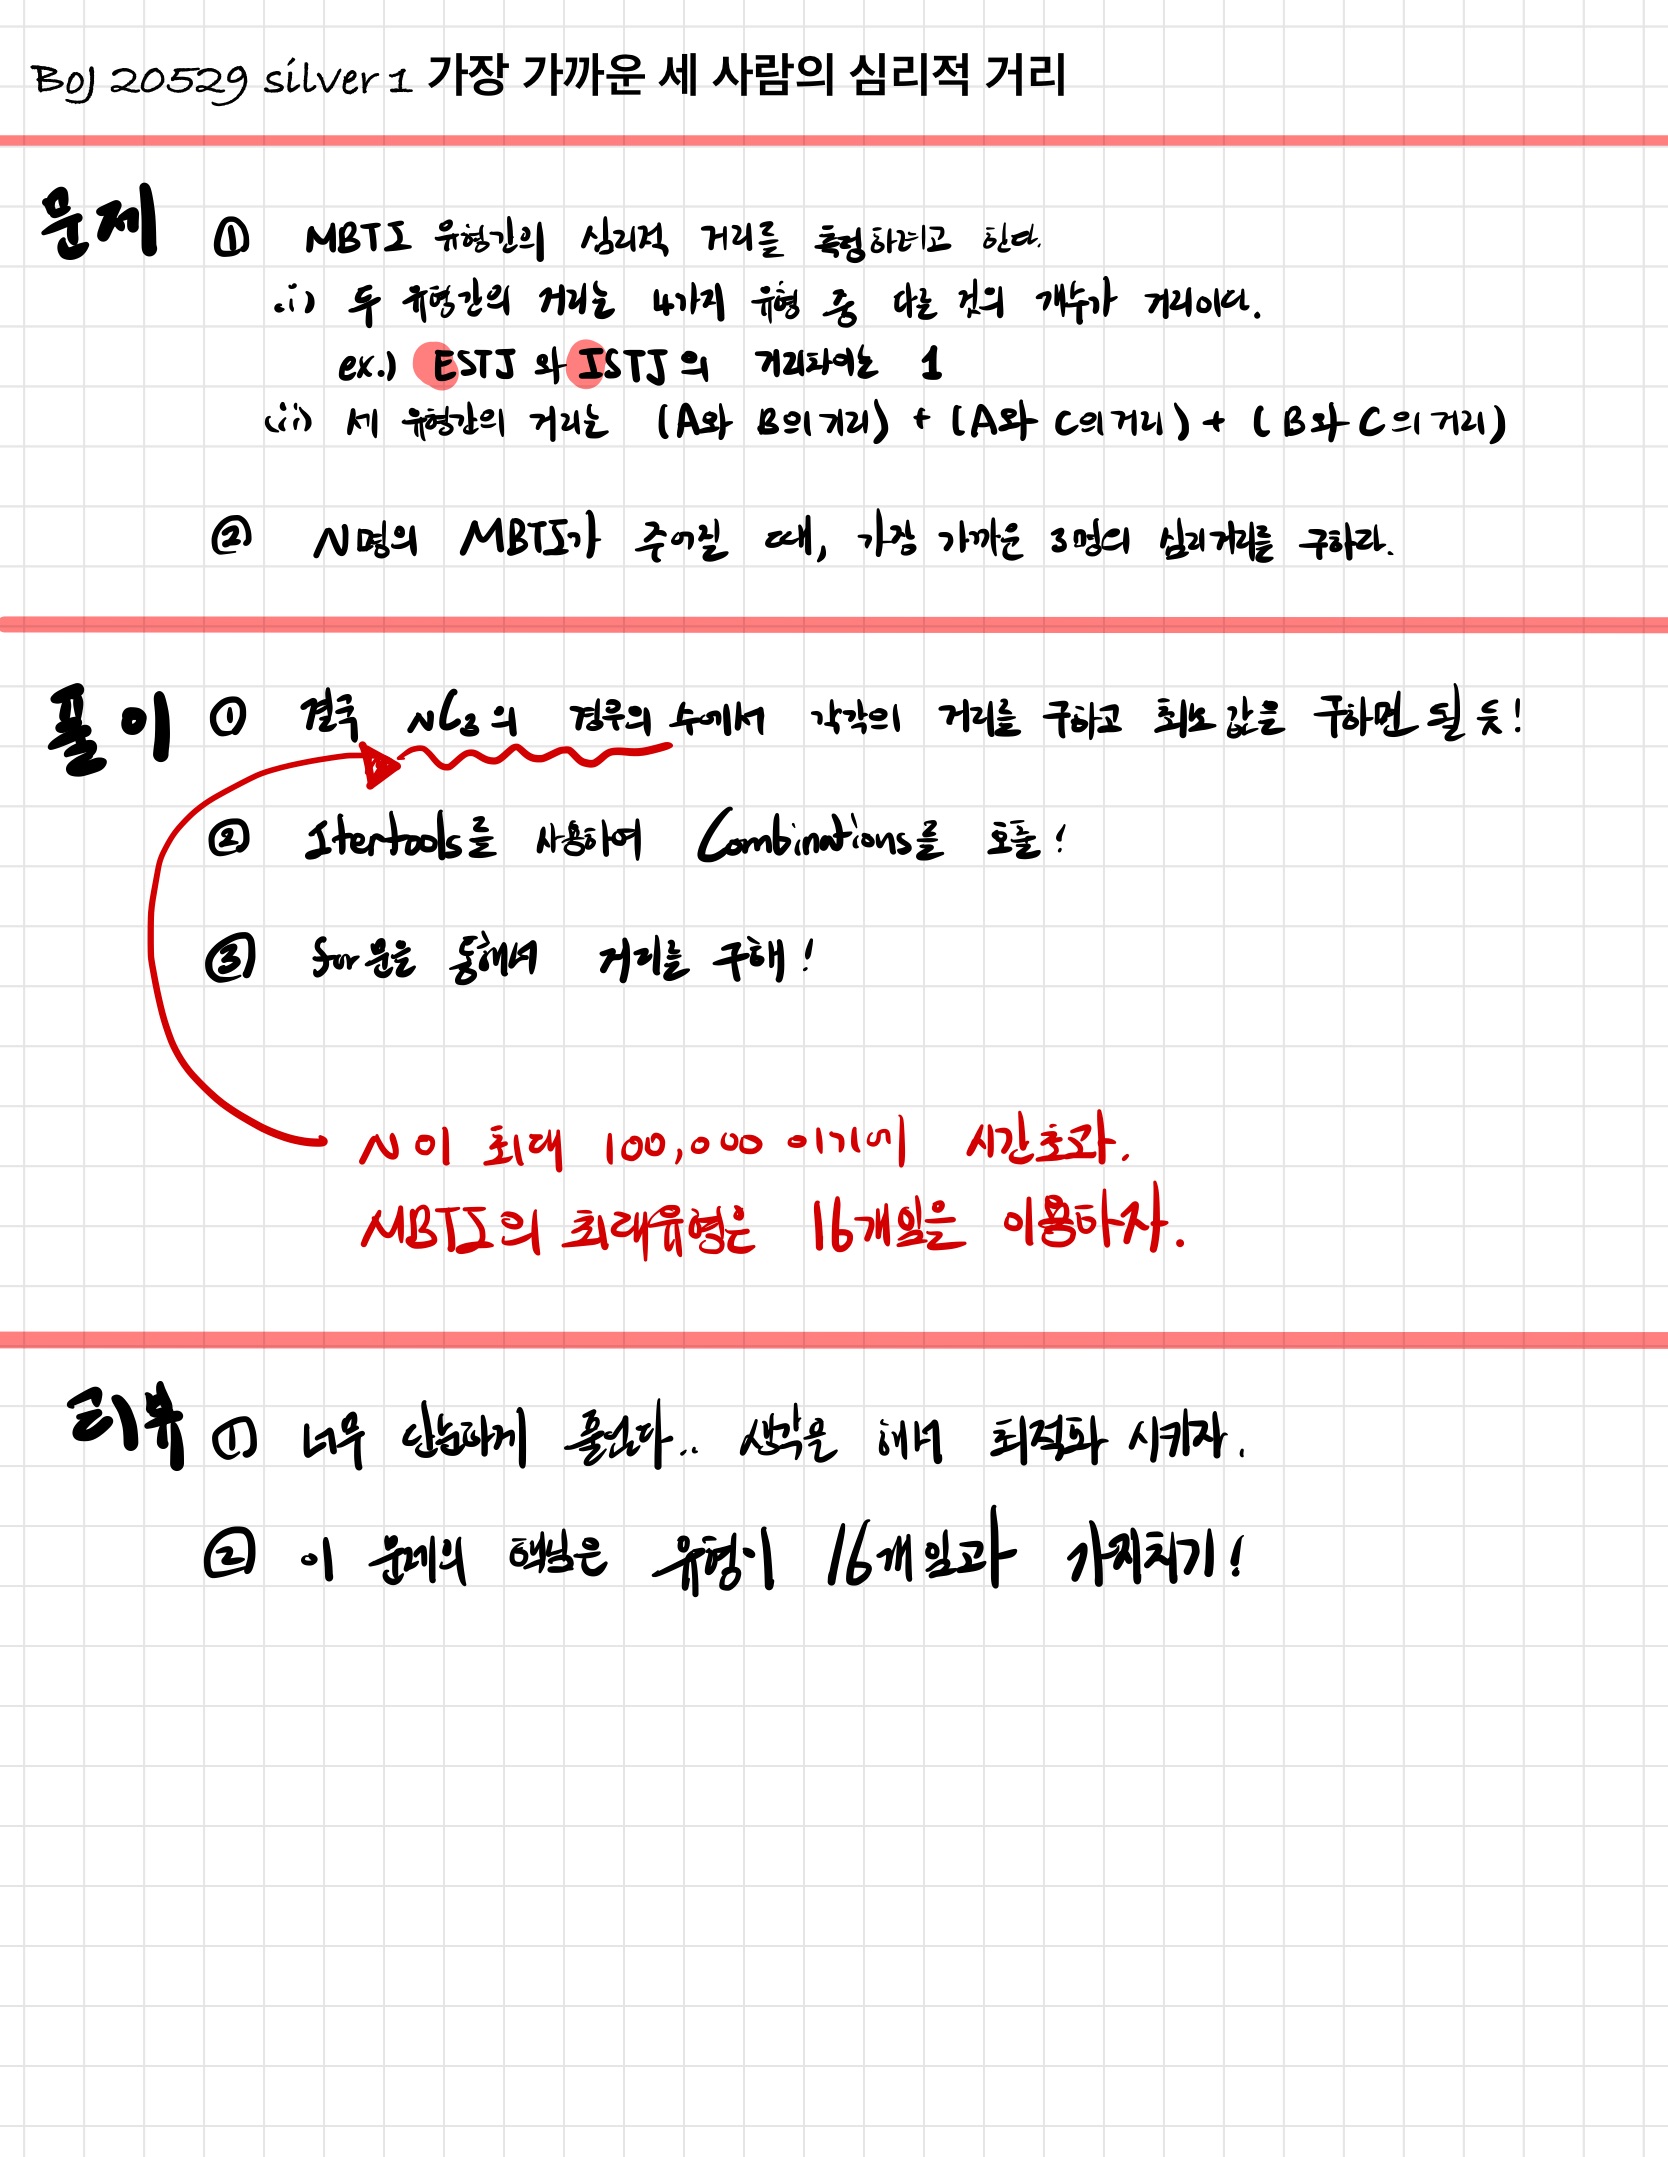 BOJ 20529 silver 1 가장 가까운 세 사람의 심리적 거리
문제 ① MBTI 유형간의 심리적 거리를 측정하려고 한다.
(i) 두 유형간의 거리는 4가지 유형 중 다른 것의 개수가 거리이다.
ex.) ESTJ 와 ISTJ의 거리차이는 1
(ii) 세 유형간의 거리는 (A와 B의 거리) + (A와 C의 거리) + (B와 C의 거리)
② N명의 MBTI가 주어질 때, 가장 가까운 3명의 심리거리를 구하라.
풀이 ① 결국 NC3의 경우의 수에서 각각의 거리를 구하고 최소값을 구하면 될 듯!
② Itertools를 사용하여 Combinations를 호출!
③ for문을 통해서 거리를 구해!
N이 최대 100,000 이기에 시간초과.
MBTI의 최대유형은 16개임을 이용하자.
리뷰 ① 너무 단순하게 풀었다.. 생각을 해서 최적화 시키자.
② 이 문제의 핵심은 유형이 16개임과 가지치기!